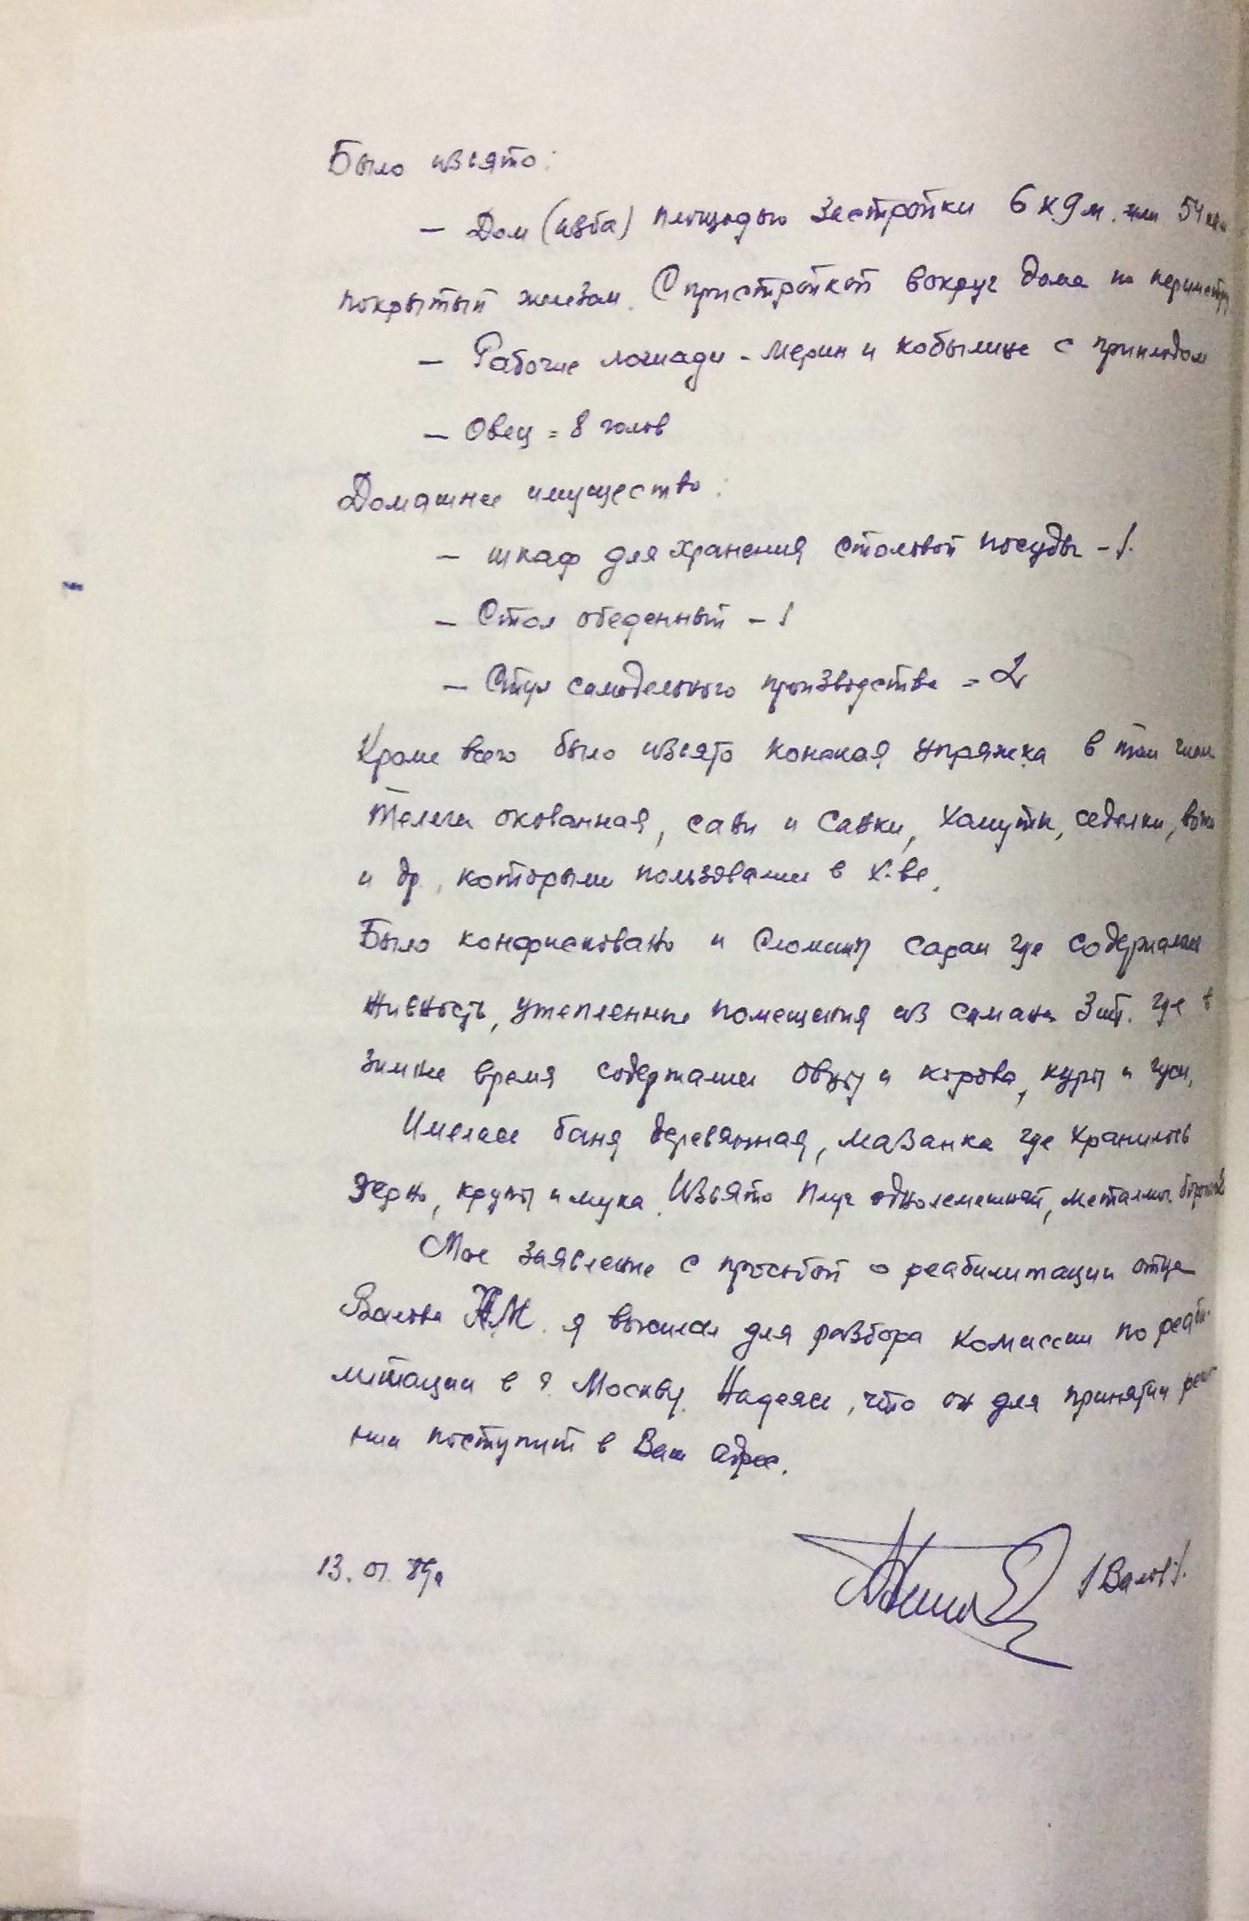 Было изъято:
— Дом (изба) площадью застройки 6 х 9 м. или 54 кв.м
покрытый железом. С пристройкой вокруг дома по периметру
— Рабочие лошади - мерин и кобылица с приплодом
— Овец = 8 голов
Домашнее имущество:
— шкаф для хранения столовой посуды - 1.
— Стол обеденный - 1
— Стул самодельного производства = 2
Кроме всего было изъято конская упряжка в том числе
телега окованная, сани и санки, хомуты, седелки, вожжи
и др., которыми пользовались в х-ве.
Было конфисковано и сарай где содержалась
живность, утепленные помещения из самана 3 шт. где в
зимнее время содержались овцы и корова, куры и гуси.
Имелась баня деревянная, мазанка где хранилось
зерно, крупы и мука. Изъято плуг однолемешный, металлич.
Мое заявление с просьбой о реабилитации отца
Валова М. я выслал для разбора комиссии по реаби-
литации в г. Москву. Надеюсь, что он для принятия реше
ния поступит в Ваш адрес.
13. 01. 89г /Валов/.